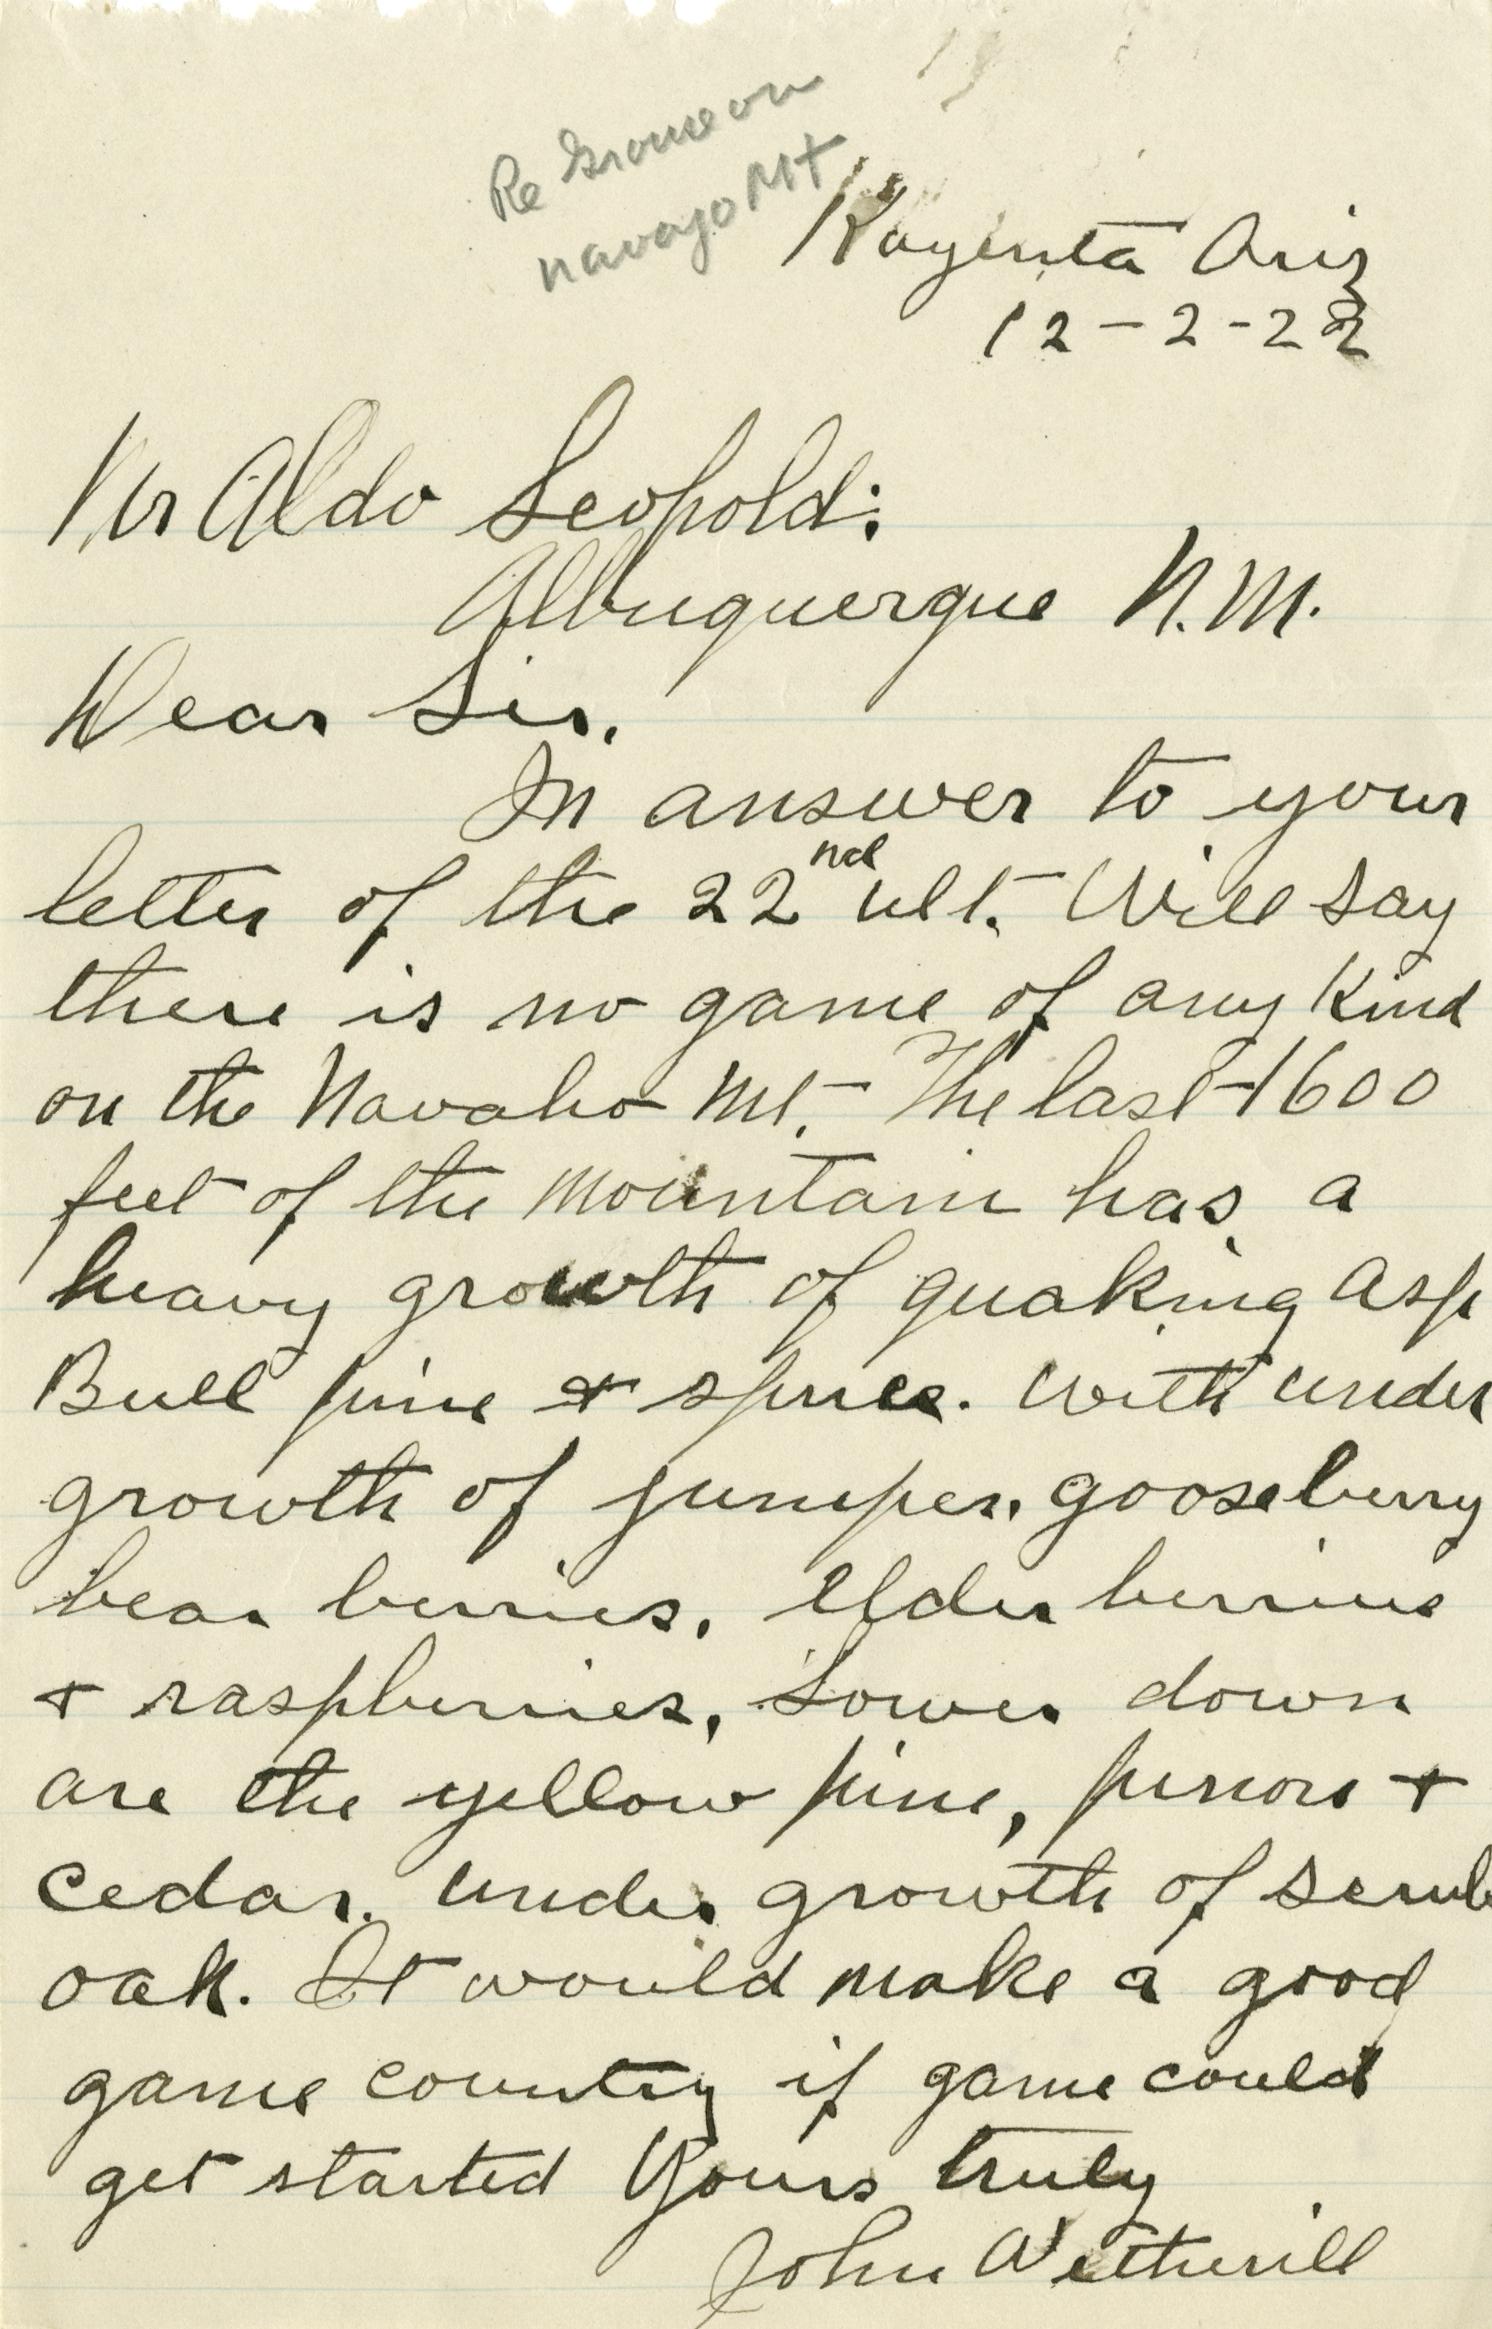 Re Grouse on
navajo Mt
Kayenta Ariz
12-2-22
Mr Aldo Leopold:
Albuquerque N.M.
Dear Sir.
In answer to your
letter of the 22nd ult. Will say
there is no game of any Kind
on the Navaho Mt. The last 1600
feet of the mountain has a
heavy growth of quaking asp
Bull pine + spruce. with under
growth of juniper, gooseberry
bear berries, Elder berries
+ raspberries, Lower down
are the yellow pine, pinon +
cedar. under growth of scrub
oak. It would make a good
game country if game could
get started Yours truly
John Wetherill